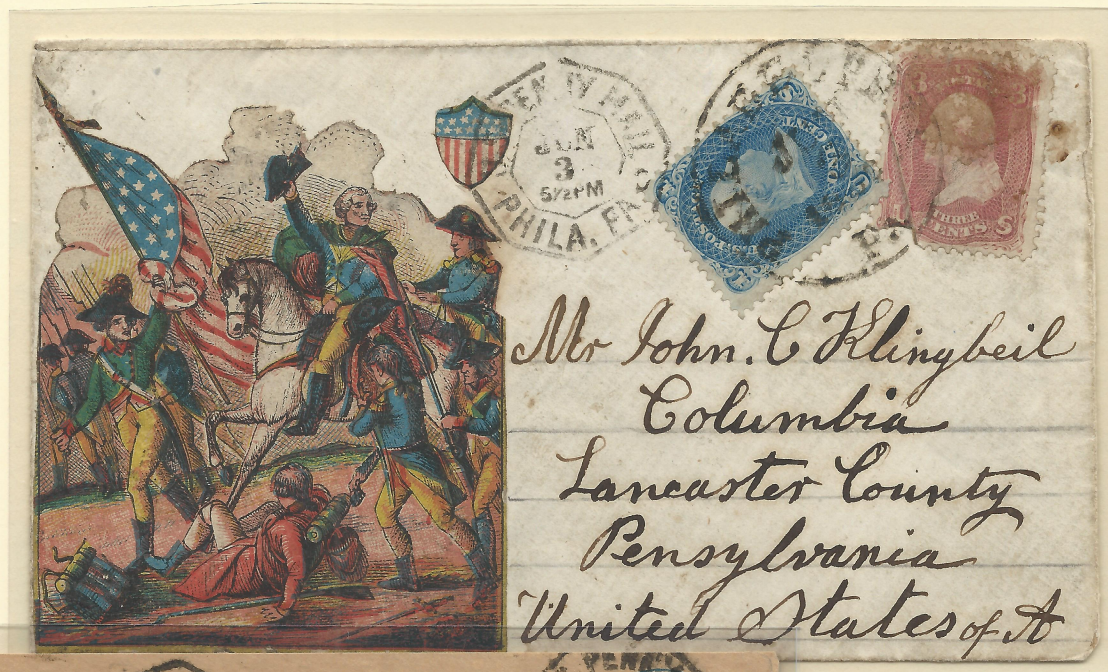 PHILA. PA.
JUN
3
5½PM
THREE
CENTS
Mr John. C Klingbeil
Columbia
Lancaster County
Pensylvania
United States of A
PENN